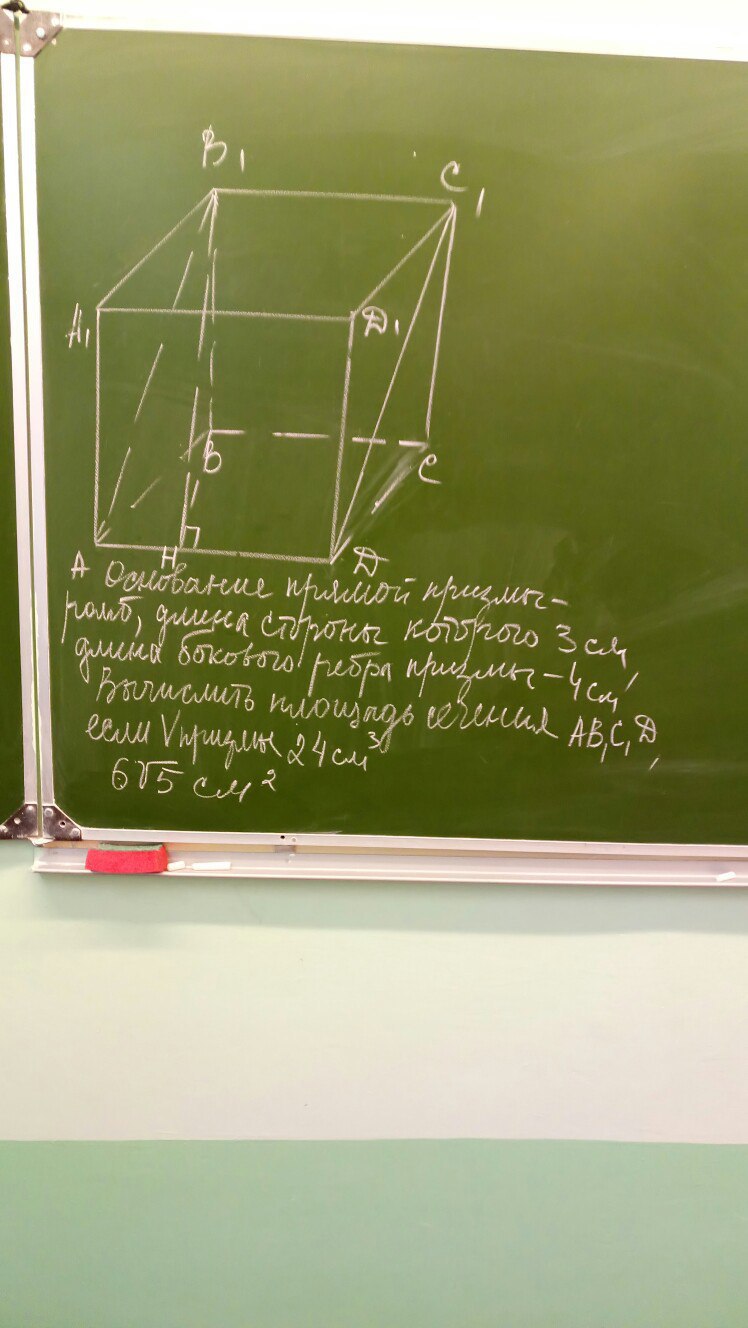 B₁
C₁
A₁
D₁
B
C
H
D
A Основание прямой призмы-
ромб, длина стороны которого 3 см,
длина бокового ребра призмы - 4 см,
Вычислить площадь сечения AB₁C₁D,
если V призмы 24 см³
6√5 см²